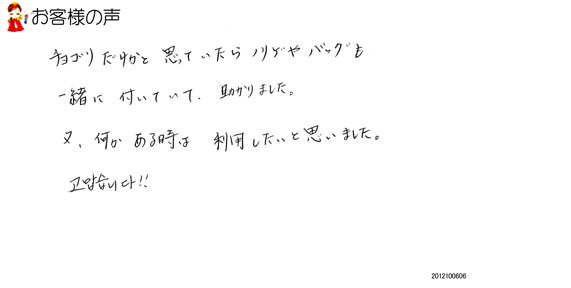 お客様の声
チョゴリだけかと思っていたらノリゲやバッグも
一緒に付いていて、助かりました。
又、何かある時は利用したいと思いました。
고맙습니다!!
2012100606